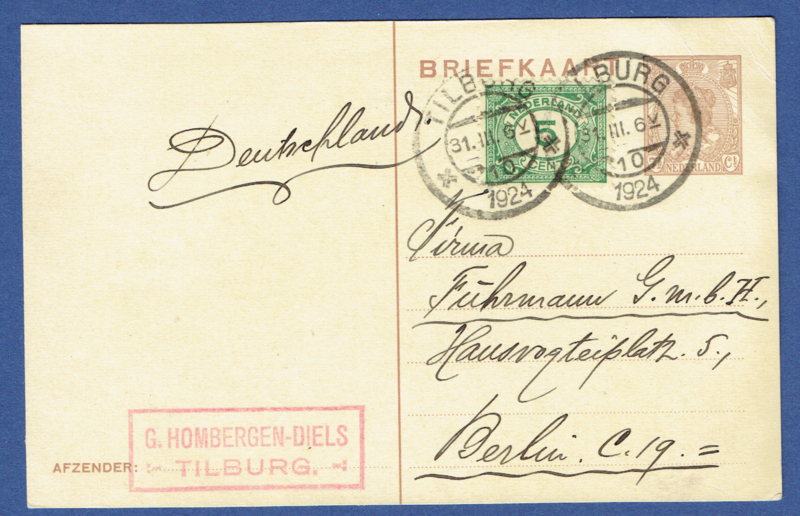 BRIEFKAART
TILBURG
31.III.6
10
1924
TILBURG
31.III.6
10
1924
NEDERLAND
5
CENT
NEDERLAND
Ct
Deutschland.
Firma
Fuhrmann G.m.b.H.,
Hausvogteiplatz. 5.,
Berlin. C. 19. =
G. HOMBERGEN-DIELS
TILBURG.
AFZENDER: